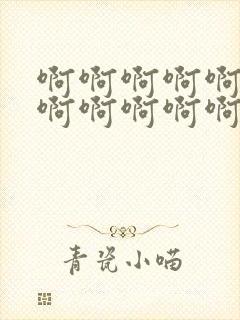 啊啊啊啊啊
啊啊啊啊啊
青瓷小喵